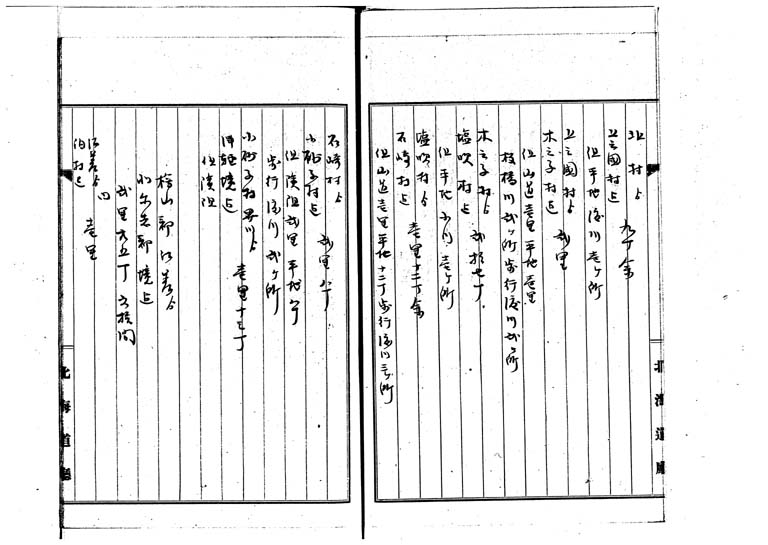 北村ゟ　九丁余
五三國村迄
但平地渡川壱ヶ所
五三國村ゟ　弐里
木之子村迄
但山道壱里平地壱里
枝橋川弐ヶ所歩行渡川弐ヶ所
木之子村ゟ　弐拾七丁
塩吹村迄
但平地小川壱ヶ所
塩吹村ゟ　壱里十二丁余
石崎村迄
但山道壱里平地十二丁歩行渡川三ヶ所
北海道廳
石崎村ゟ
小砂子村迄　弐里八丁
但濱沿弐里平地八丁
歩行渡川弐ヶ所
小砂子村界川ゟ　壱里十三丁
津軽境迄
但濱沿
檜山郡江差ゟ
爾志郡境迄
弐里六五丁五拾間
江差ゟ
泊村迄　壱里
北海道廳